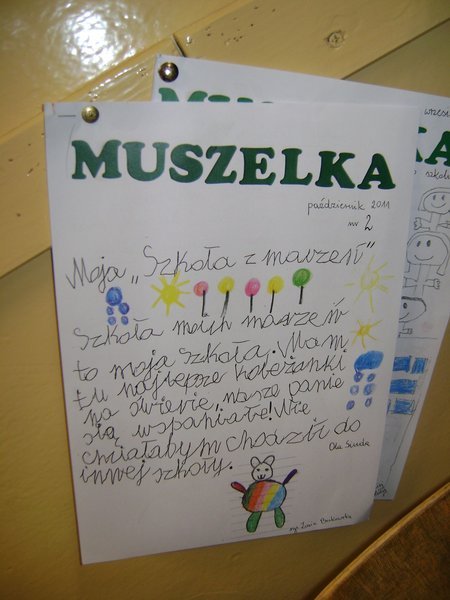 MUSZELKA
październik 2011
nr 2
Moja „Szkoła z marzeń"
Szkoła moich marzeń
to moja szkoła. Mam
tu najlepsze koleżanki
na świecie, nasze panie
są wspaniałe! Nie
chciałabym chodzić do
innej szkoły.
Ola
rys. Zosia